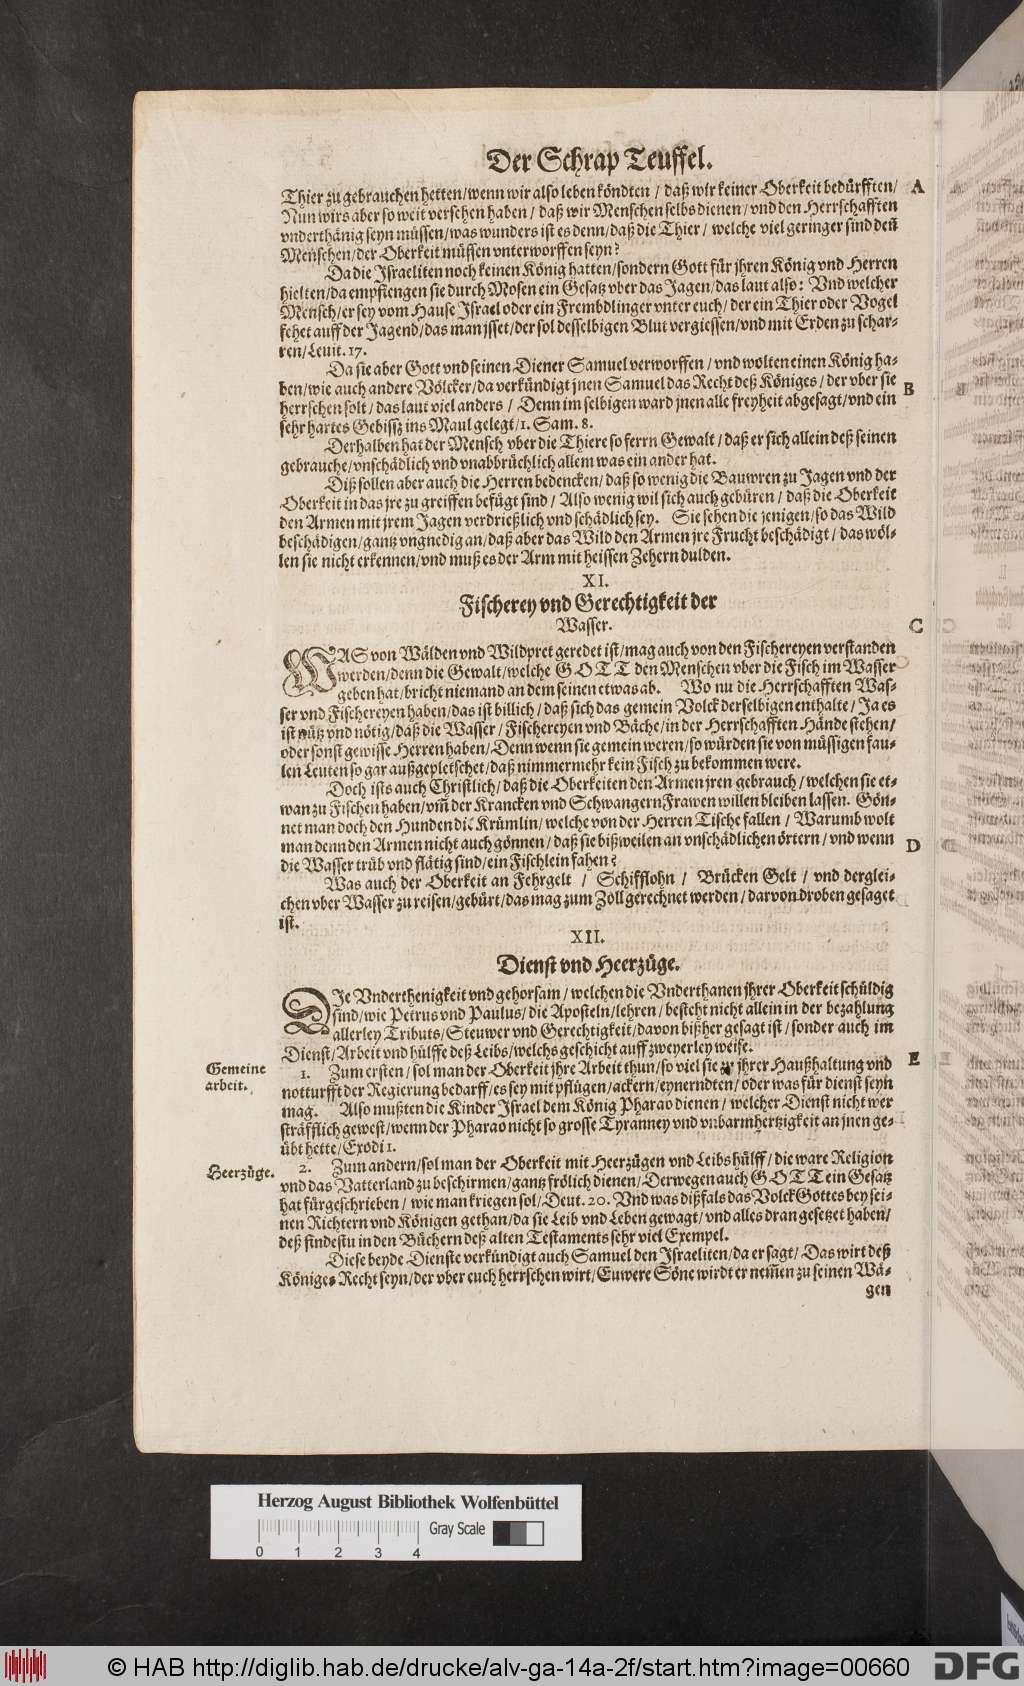 Der Schrap Teuffel.
Thier zu gebrauchen hetten/wenn wir also leben köndten / daß wir keiner Oberkeit bedürfften/
A
Nun wirs aber so weit versehen haben / daß wir Menschen selbs dienen/ vnd den Herrschafften
vnderthänig seyn müssen/was wunders ist es denn/daß die Thier / welche viel geringer sind deñ
Menschen/der Oberkeit müssen vnterworffen seyn?
Da die Israeliten noch keinen König hatten/sondern Gott für jhren König vnd Herren
hielten/da empfiengen sie durch Mosen ein Gesatz vber das Jagen/das laut also: Vnd welcher
Mensch/er sey vom Hause Israel oder ein Frembdlinger vnter euch/ der ein Thier oder Vogel
fehet auff der Jagend/das man jsset/der sol desselbigen Blut vergiessen/vnd mit Erden zu schar-
ren/Leuit. 17.
Da sie aber Gott vnd seinen Diener Samuel verworffen / vnd wolten einen König ha-
ben/wie auch andere Völcker/da verkündigt jnen Samuel das Recht deß Königes/ der vber sie
B
herrschen solt / das laut viel anders / Denn im selbigen ward jnen alle freyheit abgesagt/vnd ein
sehr hartes Gebissz ins Maul gelegt/1. Sam. 8.
Derhalben hat der Mensch vber die Thiere so ferrn Gewalt / daß er sich allein deß seinen
gebrauche/vnschädlich vnd vnabbrüchlich allem was ein ander hat.
Diß sollen aber auch die Herren bedencken/daß so wenig die Bauwren zu Jagen vnd der
Oberkeit in das jre zu greiffen befügt sind / Also wenig wil sich auch gebüren / daß die Oberkeit
den Armen mit jrem Jagen verdrießlich vnd schädlich sey. Sie sehen die jenigen/so das Wild
beschädigen/gantz vngnedig an/daß aber das Wild den Armen jre Frucht beschädigt / das wöl-
len sie nicht erkennen/vnd muß es der Arm mit heissen Zehern dulden.
XI.
Fischerey vnd Gerechtigkeit der
Wasser.
C
WAS von Wälden vnd Wildpret geredet ist/mag auch von den Fischereyen verstanden
werden/denn die Gewalt/welche GOTT den Menschen vber die Fisch im Wasser
geben hat/bricht niemand an dem seinen etwas ab. Wo nu die Herrschafften Was-
ser vnd Fischereyen haben/das ist billich/ daß sich das gemein Volck derselbigen enthalte / Ja es
ist nütz vnd nötig/daß die Wasser / Fischereyen vnd Bäche/in der Herrschafften Hände stehen/
oder sonst gewisse Herren haben/Denn wenn sie gemein weren/so würden sie von müssigen fau-
len Leuten so gar außgepletschet/daß nimmermehr kein Fisch zu bekommen were.
Doch ists auch Christlich/daß die Oberkeiten den Armen jren gebrauch / welchen sie et-
wan zu Fischen haben/vm̃ der Krancken vnd Schwangern Frawen willen bleiben lassen. Gön-
net man doch den Hunden die Krümlin/welche von der Herren Tische fallen / Warumb wolt
man denn den Armen nicht auch gönnen / daß sie bißweilen an vnschädlichen örtern / vnd wenn
D
die Wasser trüb vnd flätig sind/ein Fischlein fahen?
Was auch der Oberkeit an Fehrgelt / Schifflohn / Brücken Gelt / vnd derglei-
chen vber Wasser zu reisen/gebürt/das mag zum Zoll gerechnet werden / darvon droben gesaget
ist.
XII.
Dienst vnd Heerzüge.
DIe Vnderthenigkeit vnd gehorsam / welchen die Vnderthanen jhrer Oberkeit schüldig
sind/wie Petrus vnd Paulus/ die Aposteln/lehren / besteht nicht allein in der bezahlung
allerley Tributs/Steuwer vnd Gerechtigkeit/davon bißher gesagt ist / sonder auch im
Dienst/Arbeit vnd hülffe deß Leibs/welchs geschicht auff zweyerley weise.
E
Gemeine
arbeit.
1. Zum ersten / sol man der Oberkeit jhre Arbeit thun/so viel sie zu jhrer Haußhaltung vnd
notturfft der Regierung bedarff/es sey mit pflügen/ackern/eynerndten/ oder was für dienst seyn
mag. Also mußten die Kinder Israel dem König Pharao dienen / welcher Dienst nicht wer
sträfflich gewest/wenn der Pharao nicht so grosse Tyranney vnd vnbarmhertzigkeit an jnen ge-
übt hette/Exodi 1.
Heerzüge.
2. Zum andern/sol man der Oberkeit mit Heerzügen vnd Leibs hülff/ die ware Religion
vnd das Vatterland zu beschirmen/gantz frölich dienen/Derwegen auch GOTT ein Gesatz
hat fürgeschrieben / wie man kriegen sol/Deut. 20. Vnd was dißfals das Volck Gottes bey sei-
nen Richtern vnd Königen gethan/da sie Leib vnd Leben gewagt/vnd alles dran gesetzet haben/
deß findestu in den Büchern deß alten Testaments sehr viel Exempel.
Diese beyde Dienste verkündigt auch Samuel den Israeliten/da er sagt/ Das wirt deß
Königes Recht seyn/der vber euch herrschen wirt/Euwere Söne wirdt er nem̃en zu seinen Wä-
gen
Herzog August Bibliothek Wolfenbüttel
Gray Scale
0 1 2 3 4
© HAB http://diglib.hab.de/drucke/alv-ga-14a-2f/start.htm?image=00660
DFG